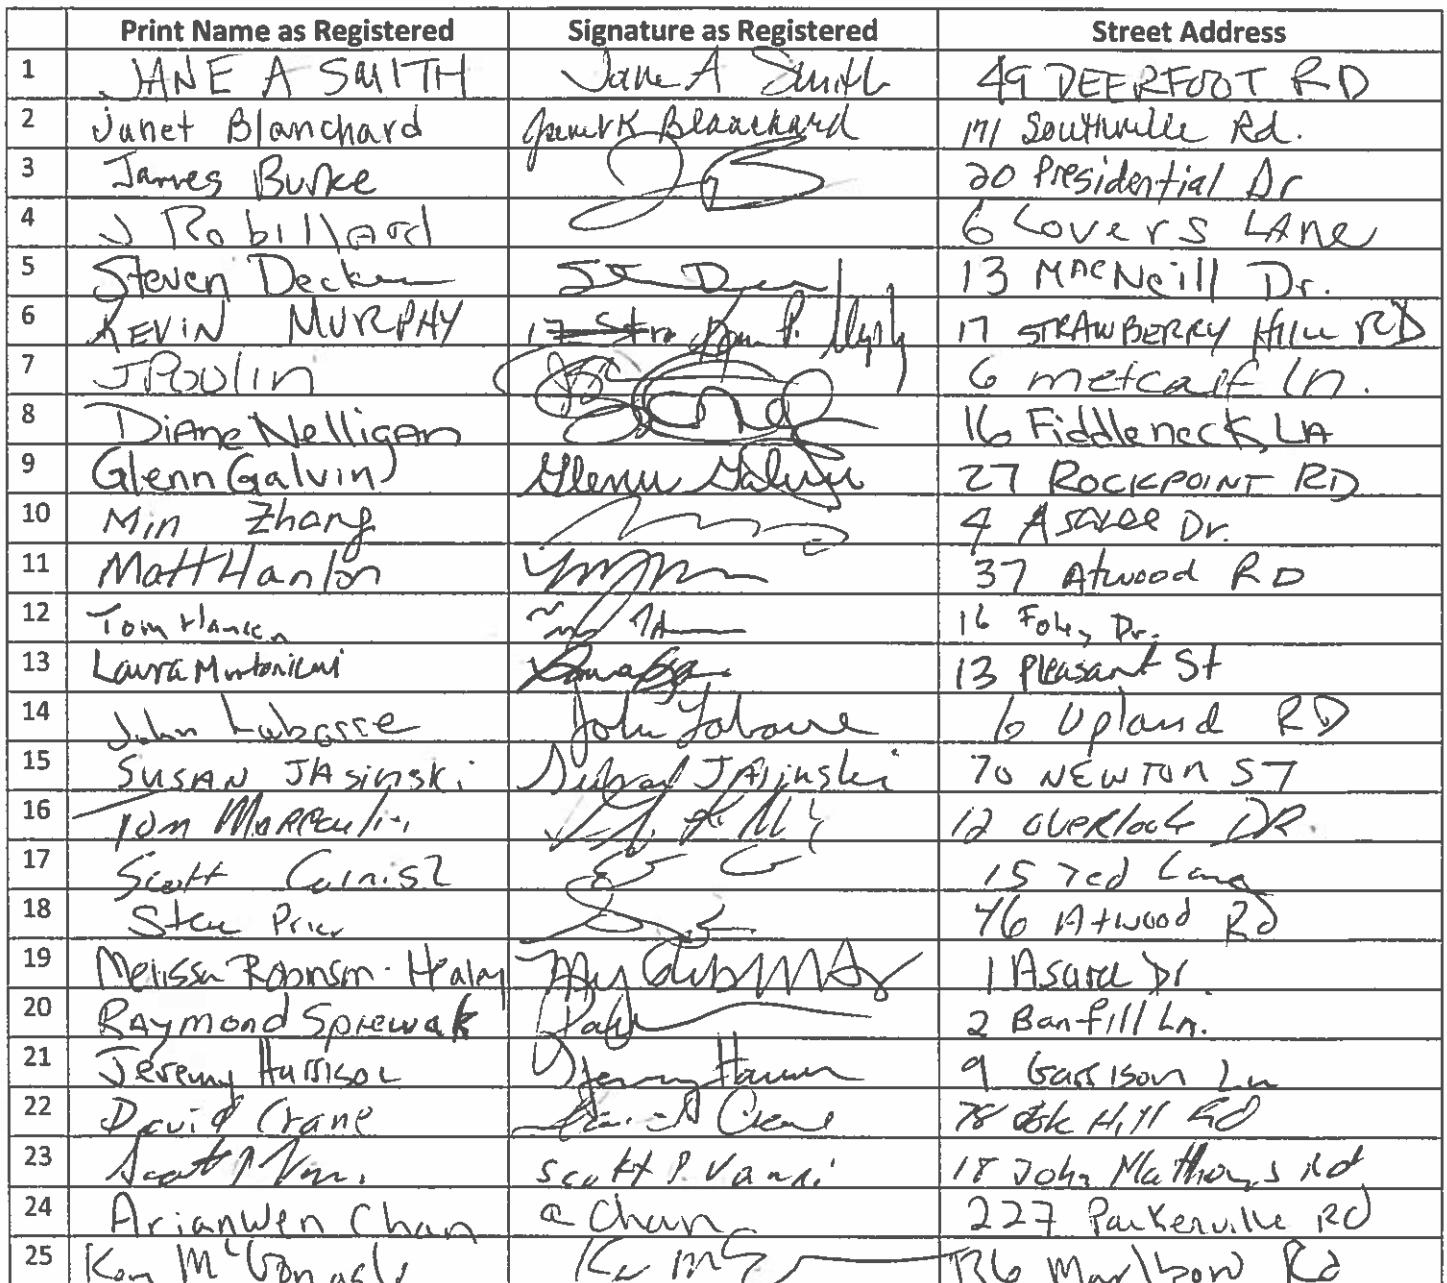 Print Name as Registered Signature as Registered Street Address
1 JANE A SMITH Jane A Smith 49 DEERFOOT RD
2 Janet Blanchard Janet K Blanchard 171 Southville Rd.
3 James Burke 20 Presidential Dr
4 J Robillard 6 Lovers LANE
5 Steven Decker 13 MacNeill Dr.
6 KEVIN MURPHY 17 STRAWBERRY HILL RD
7 J Poulin 6 metcalf ln.
8 Diane Nelligan 16 Fiddleneck LA
9 Glenn Galvin Glenn Galvin 27 ROCKPOINT RD
10 Min Zhang 4 Dr.
11 Matt Hanlon 37 Atwood RD
12 Tom 16 Dr.
13 Laura 13 Pleasant St
14 John John 6 Upland RD
15 SUSAN JASinski Susan JASinski 70 NEWTON ST
16 Tom 12 OVERLOOK DR
17 Scott 15 Ted Lane
18 Steve 46 Atwood Rd
19 Melissa Robinson-Healey 1 Dr
20 RAYMOND Sprewak 2 Banfill Ln.
21 Jeremy Harrison Jeremy 9 Garrison Ln
22 David Crane David Crane 78 Oak Hill Rd
23 Scott P. 18 John Rd
24 Arianwen Chan a Chan 227 Parkerville Rd
25 136 Marlboro Rd